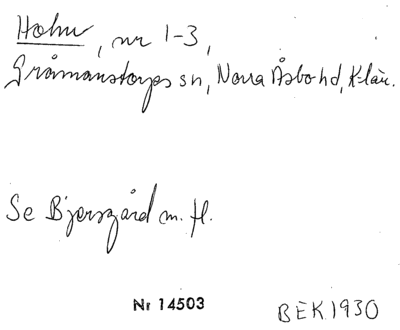 Holm, nr 1-3,
Gråmanstorps sn, Norra Åsbo hd, K-län.
Se Bjersgård m. fl.
Nr 14503
BEK 1930